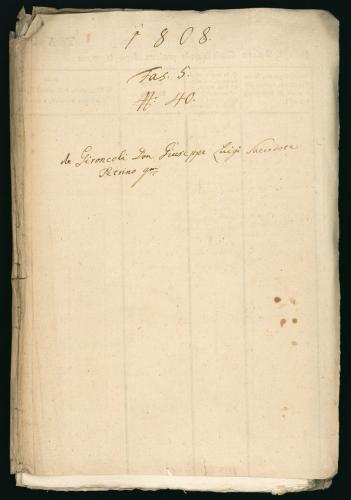 1808.
Fas. 5.
N: 40.
de Gironcoli Don Giuseppe Luigi Sacerdote
Petrino qm